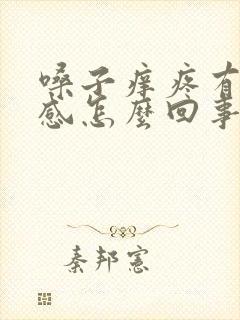 嗓子痒疼有
感怎麼回事
秦邦憲